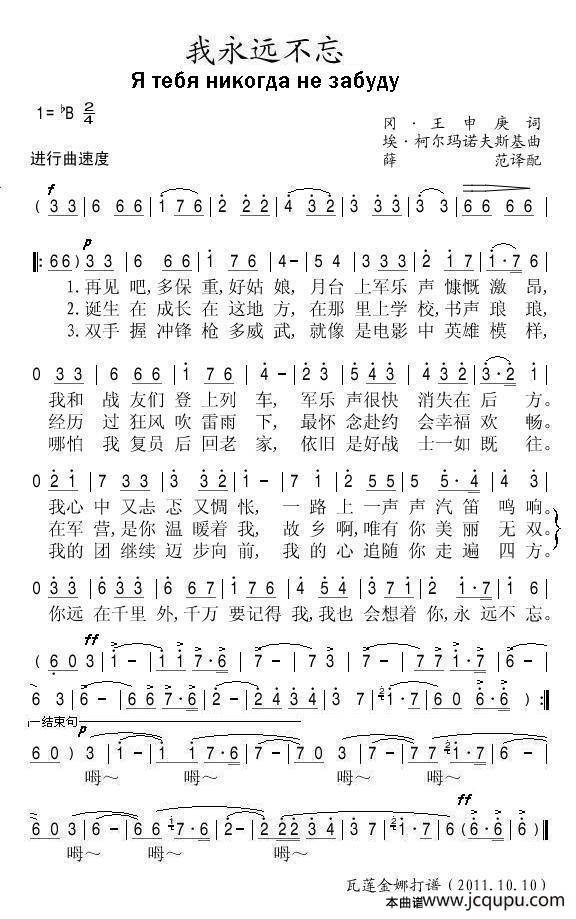 我永远不忘
Я тебя никогда не забуду
1=♭B 2/4
冈·王申庚词
埃·柯尔玛诺夫斯基曲
进行曲速度
薛范译配
f
( 3 3 | 6 6 6 | 1 7 6 | 2 2 2 | 4 3 3 | 3 3 3 | 6 6 6 6 |
p
‖: 6 6 ) 3 3 | 6 6 6 | 1 7 6 | 5 4 - | 3 3 3 | 2 1 7 | 1· 7 6 |
1.再见吧,多保重,好姑娘,月台上军乐声慷慨激昂,
2.诞生在成长在这地方,在那里上学校,书声琅琅,
3.双手握冲锋枪多威武,就像是电影中英雄模样,
0 3 3 | 6 6 6 | 1 7 6 | 4 - | 2 3 5 | 4 3 2 | 3· 2 1 |
我和战友们登上列车,军乐声很快消失在后方。
经历过狂风吹雷雨下,最怀念赴约会幸福欢畅。
哪怕我复员后回老家,依旧是好战士一如既往。
0 2 1 | 7 3 3 | 3 2 1 | 7 6 - | 1 2 | 5 5 | 5 5· 4 | 4 3 |
我心中又忐忑又惆怅,一路上一声声汽笛鸣响。
在军营,是你温暖着我,故乡啊,唯有你美丽无双。
我的团继续迈步向前,我的心追随你走遍四方。
0 3 3 | 6 3 3 | 6 6 7 | 1 7 6 | 5 4 4 | 4 3 2 | 1 7 | 1 6 |
你远在千里外,千万要记得我,我也会想着你,永远不忘。
ff
( 6 0 3 | 1 - | 1 1 7· 6 | 7 - | 7 3 | 7 - | 7 7 1· 7 | 6 - |
6 3 | 6 - | 6 6 7· 6 | 2 - | 2 2 3 4 | 3 7 | 2 1· 7 | 6 0 6· 6 ) :‖
结束句
p
6 0 ) 3 | 1 - | 1 1 7· 6 | 7 - | 7 0 3 | 7 - | 7 7 1· 7 | 6 - |
呣～ 呣～ 呣～
ff
6 0 3 | 6 - | 6 6 7· 6 | 2 - | 2 2 3 4 | 3 7 | 2 1· 7 | 6 6· 6 | 6 0 ‖
呣～ 呣～
瓦莲金娜打谱(2011.10.10)
本曲谱 www.jcqupu.com